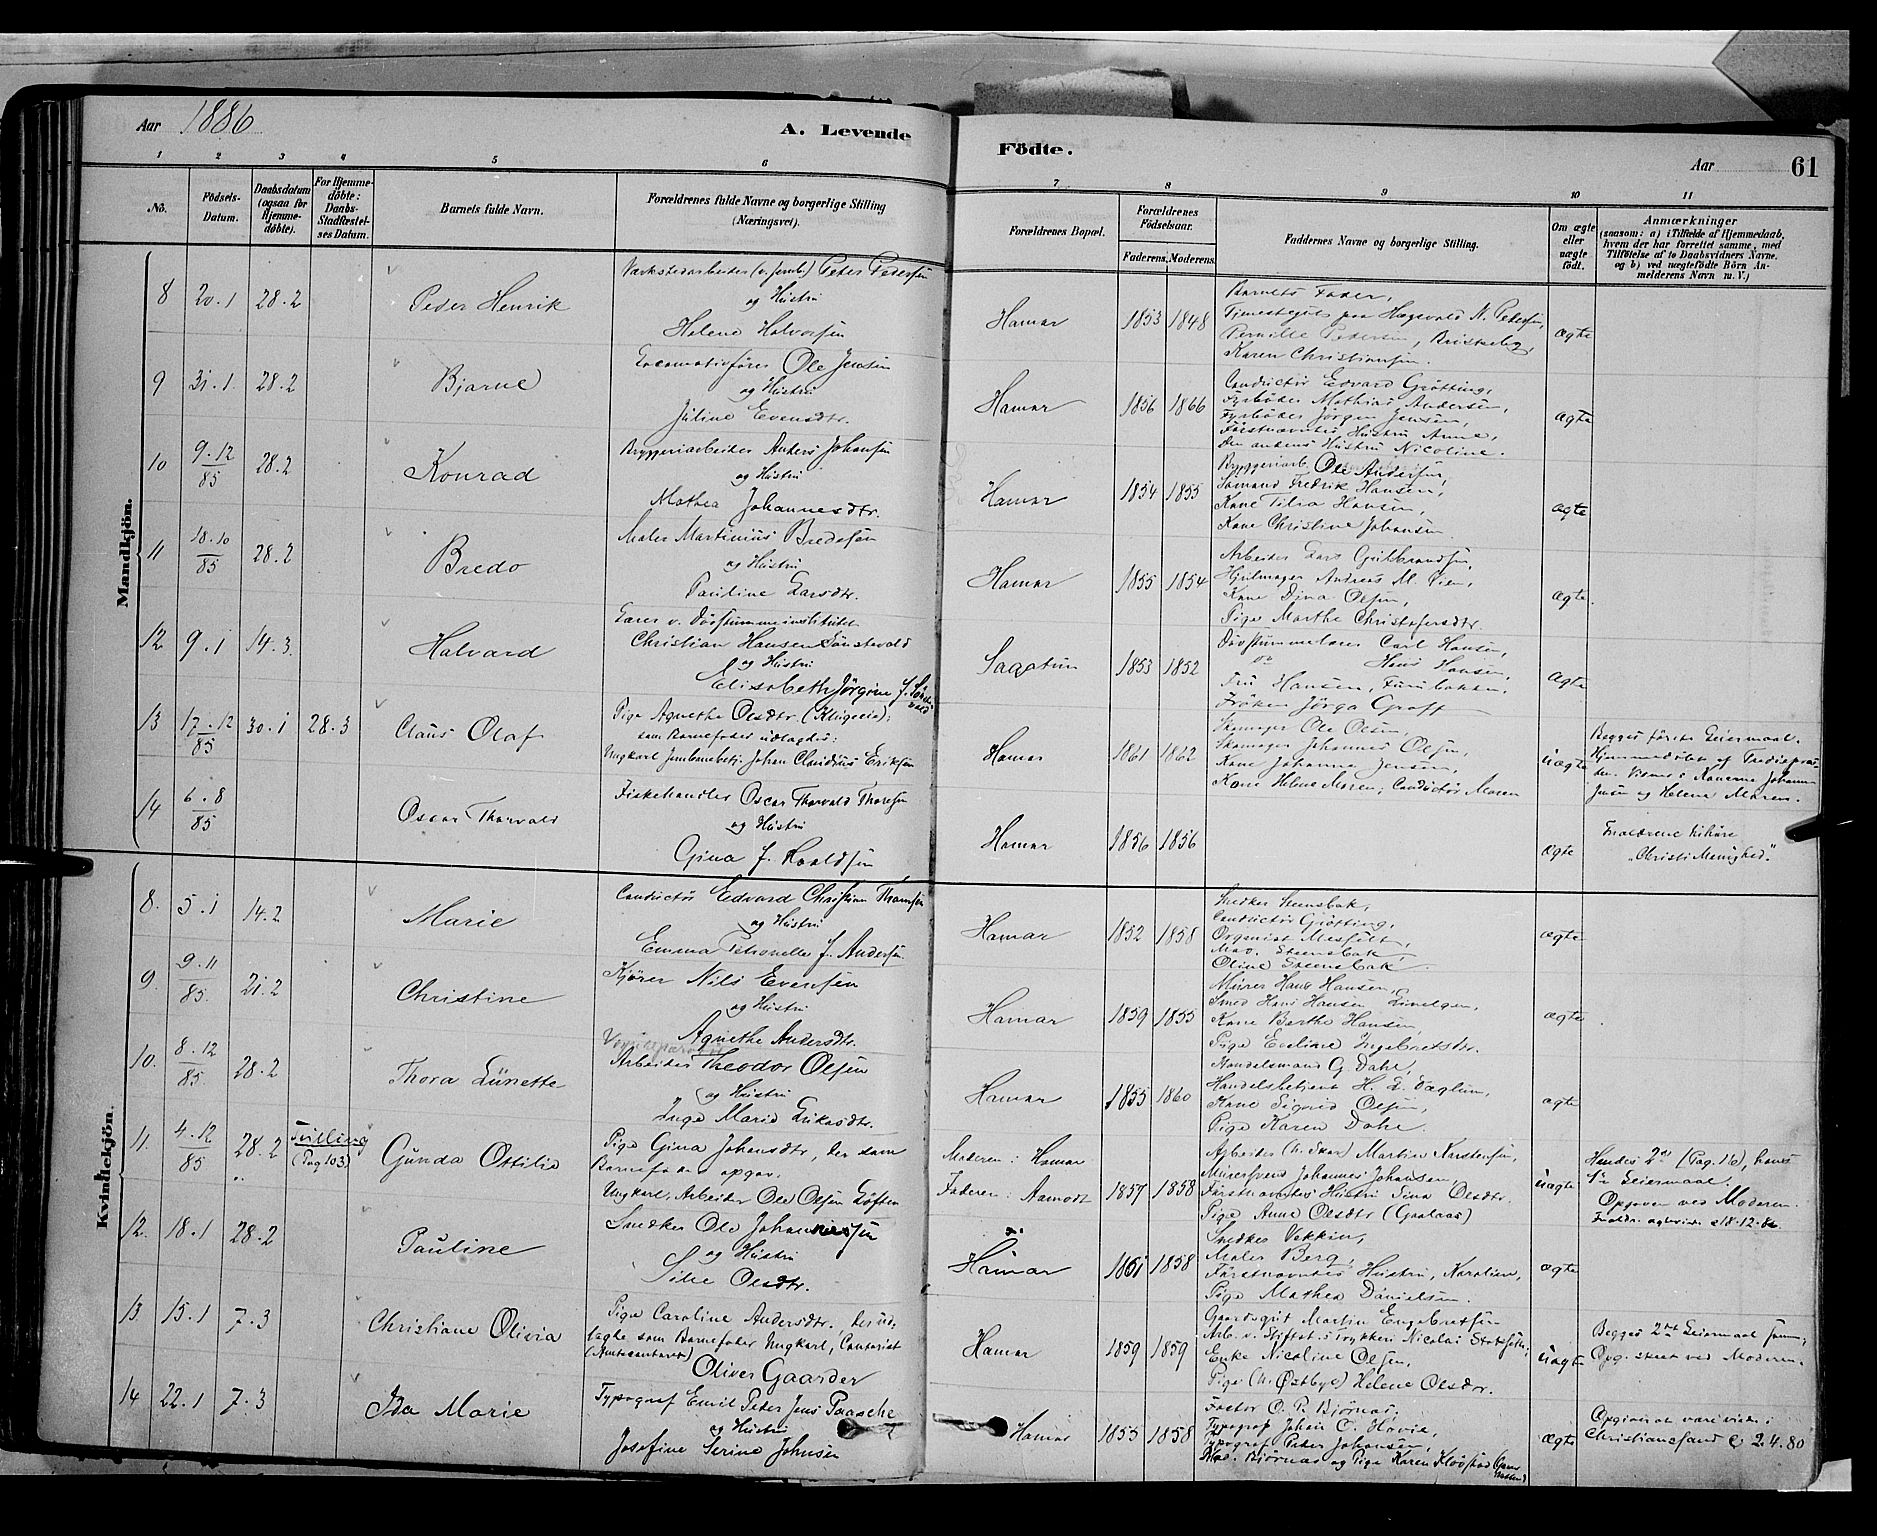 Aar 1886
A. Levende
Födte.
Aar
61
1 2 3 4 5 6
7 8 9 10 11
No.
Födsels-
Datum.
Daabsdatum
(ogsaa for
Hjemme-
döbte).
For Hjemme-
döbte:
Daabs-
Stadfæstel-
ses Datum.
Barnets fulde Navn.
Forældrenes fulde Navne og borgerlige Stilling
(Næringsvei).
Forældrenes Bopæl.
Forældrenes
Födselsaar.
Faderens. Moderens.
Faddernes Navne og borgerlige Stilling.
Om ægte
eller
uægte
födt.
Anmærkninger
(saasom: a) i Tilfælde af Hjemmedaab,
hvem der har forrettet samme, med
Tilföielse af to Daabsvidners Navne.
og b) ved uægtefödte Börn An-
melderens Navn m. V.)
Mandkjön.
8 20.1 28.2 Peder Henrik
Værkstedarbeider (v. Jernb.) Peter Pedersen
og Hustru
Helene Halvorsen
Hamar 1853 1848
Barnets Fader,
Tjenestegut paa Hægsvold N. Pedersen,
Pernille Pedersen, Briskeby,
Karen Christiansen.
ægte
9 31.1 28.2 Bjarne
Locomotivförer Ole Jensen
og Hustru
Juline Evensdtr.
Hamar 1856 1866
Conductör Edvard Grötting,
Fyrböder Mathias Andersen,
Fyrböder Jörgen Jensen,
Förstnævntes Hustru Anne,
Den andens Hustru Nicoline.
ægte
10 9.12/85 28.2 Konrad
Bryggeriarbeider Anders Johansen
og Hustru
Mathea Johannesdtr.
Hamar 1854 1855
Bryggeriarb. Ole Andersen,
Sömand Fredrik Hansen,
Kone Tilia Hansen,
Kone Christine Johansen.
ægte
11 18.10/85 28.2 Bredo
Maler Martinius Bredesen
og Hustru
Pauline Larsdtr.
Hamar 1855 1854
Arbeider Lars Gulbrandsen,
Hjulmager Andreas M. Öien,
Kone Dina Olsen,
Pige Marthe Christofersdtr.
ægte.
12 9.1 14.3. Halvard
Lærer v. Dövstummeinstitutet
Christian Hansen Sönstevold
og Hustru
Elisabeth Jörgine f. Sönstevold
Sagatun 1853 1852
Dövstummelærer Carl Hansen,
do Hans Hansen,
Fru Hansen, Furubakken,
Fröken Jörga Groff
ægte
13 17.12/85 30.1 28.3 Claus Olaf
Pige Agnethe Olsdtr. (Klugeeie);
som Barnefader udlagdes:
Ungkarl Jernbanebetj. Johan Claudius Eriksen
Hamar 1861 1862
Skomager Ole Olsen,
Skomager Johannes Olsen,
Kone Johanne Jensen,
Kone Helene Moren, Conductör Moren
uægte
Begges förste Leiermaal.
Hjemmedöbt af
Vidner: Konerne Johanne
Jensen og Helene Moren.
14 6.8/85 Oscar Thorvald
Fiskehandler Oscar Thorvald Thoresen
og Hustru
Gina f. Roaldsen
Hamar 1856 1856
ægte
Forældrene tilhöre
"Christi Menighed".
Kvindekjön.
8. 5.1 14.2 Marie
Conductör Edvard Christian Thomsen
og Hustru
Emma Petronelle f. Andersen
Hamar 1852 1858
Snedker Steensbak,
Conductör Grötting,
Organist Mesfelt,
Mad. Steensbak,
Oline Steensbak.
ægte
9. 9.11/85. 21.2 Christine
Kjörer Nils Evensen
og Hustru
Agnethe Andersdtr.
Hamar 1859 1855
Murer Hans Hansen,
Smed Hans Hansen
Kone Berthe Hansen,
Pige Eveline Ingebretsdtr.
ægte.
10. 8.12/85 28.2 Thora Lünette
Arbeider Theodor Olsen
og Hustru
Inge Marie Eriksdtr.
Hamar 1855 1860
Handelsmand G. Dahl,
Handelsbetjent H. L. Vaglum,
Kone Sigrid Olsen,
Pige Karen Dahl.
ægte
11. 4.12/85 28.2 Tvilling
(Pag 103) Gunda Ottilie
Pige Gina Johansdtr, der som
Barnefader opgav.
Ungkarl, Arbeider Ole Olsen Löften
Moderen: Hamar
Faderen: Aamodt 1857 1858
Arbeider (N. Skar) Martin Karstensen,
Murersvend Johannes Johansen,
Förstnævntes Hustru Sina Olsdtr.
Pige Anne Olsdtr (Gaalaas)
uægte
Hendes 2det (Pag. 16), hans
1te Leiermaal.
Opgaven ved Moderen.
Forældr. ægteviede 18.12.86
12. 18.1 28.2 Pauline
Snedker Ole Johannessen
og Hustru
Silie Olsdtr.
Hamar 1851 1858
Snedker Vekken,
Maler Berg,
Förstnævntes Hustru, Karoline,
Pige Mathea Danielsen.
ægte
13 15.1 7.3 Christiane Olivia
Pige Caroline Andersdtr., der ud-
lagde som Barnefader Ungkarl, Contorist
(Amtscontoret)
Oliver Gaarder
Hamar 1859 1859
Gaardsgut Martin Engebretsen
Arb. v. Stiftst.s Trykkeri Nicolai
Enke Nicoline Olsen,
Pige (N. Østbye) Helene Olsdtr.
uægte
Begges 2det Leiermaal
Opg. skeet ved Moderen.
14 22.1 7.3 Ida Marie
Typograf Emil Peter Jens Paasche
og Hustru
Josefine Serine Johnsen
Hamar 1855 1858
Faktor O. P. Björnas,
Typograf Johan O. Hövik,
Typograf Peter Johansen,
Mad. Björnas og Pige Karen Klövstad
ægte
Opgives at være viede i
Christianssand 2.4.80